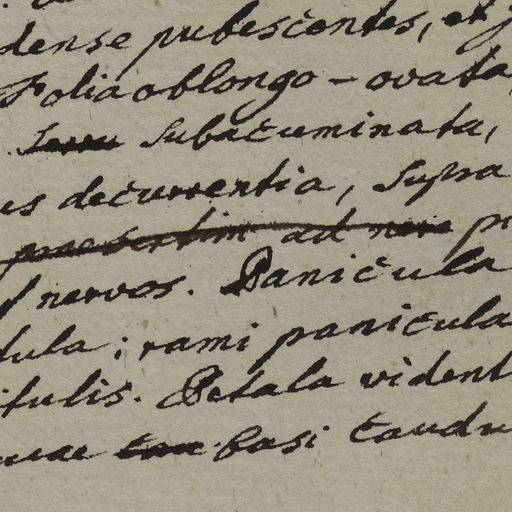 dense pubescentes, et
Folia oblongo-ovata,
Subacuminata,
us decurrentia, Supra
praesertim ad nerv
nervos. Panicula
tula; rami panicula
itulis. Petala vident
basi